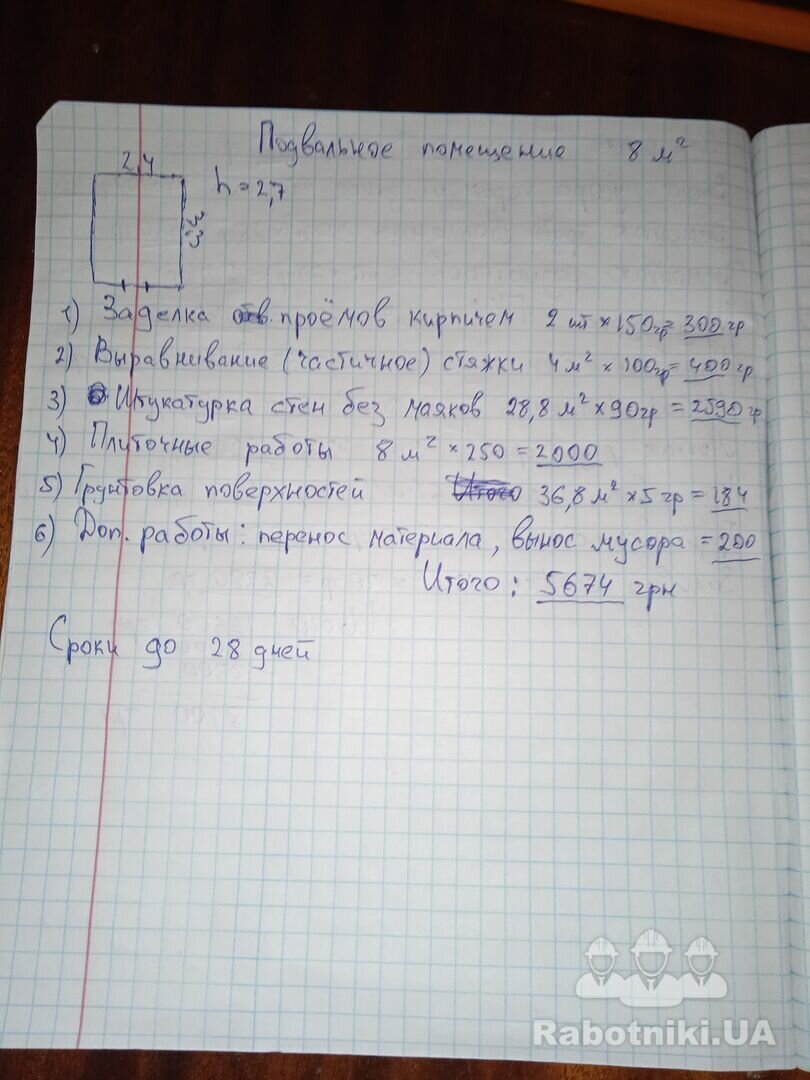 Подвальное помещение 8 м²
2,4
h = 2,7
3,3
1) Заделка отв. проёмов кирпичем 2 шт × 150гр = 300 гр
2) Выравнивание (частичное) стяжки 4 м² × 100гр = 400 гр
3) Штукатурка стен без маяков 28,8 м² × 90гр = 2590 гр
4) Плиточные работы 8 м² × 250 = 2000
5) Грунтовка поверхностей Итого 36,8 м² × 5 гр = 184
6) Доп. работы: перенос материала, вынос мусора = 200
Итого: 5674 грн
Сроки до 28 дней
Rabotniki.UA